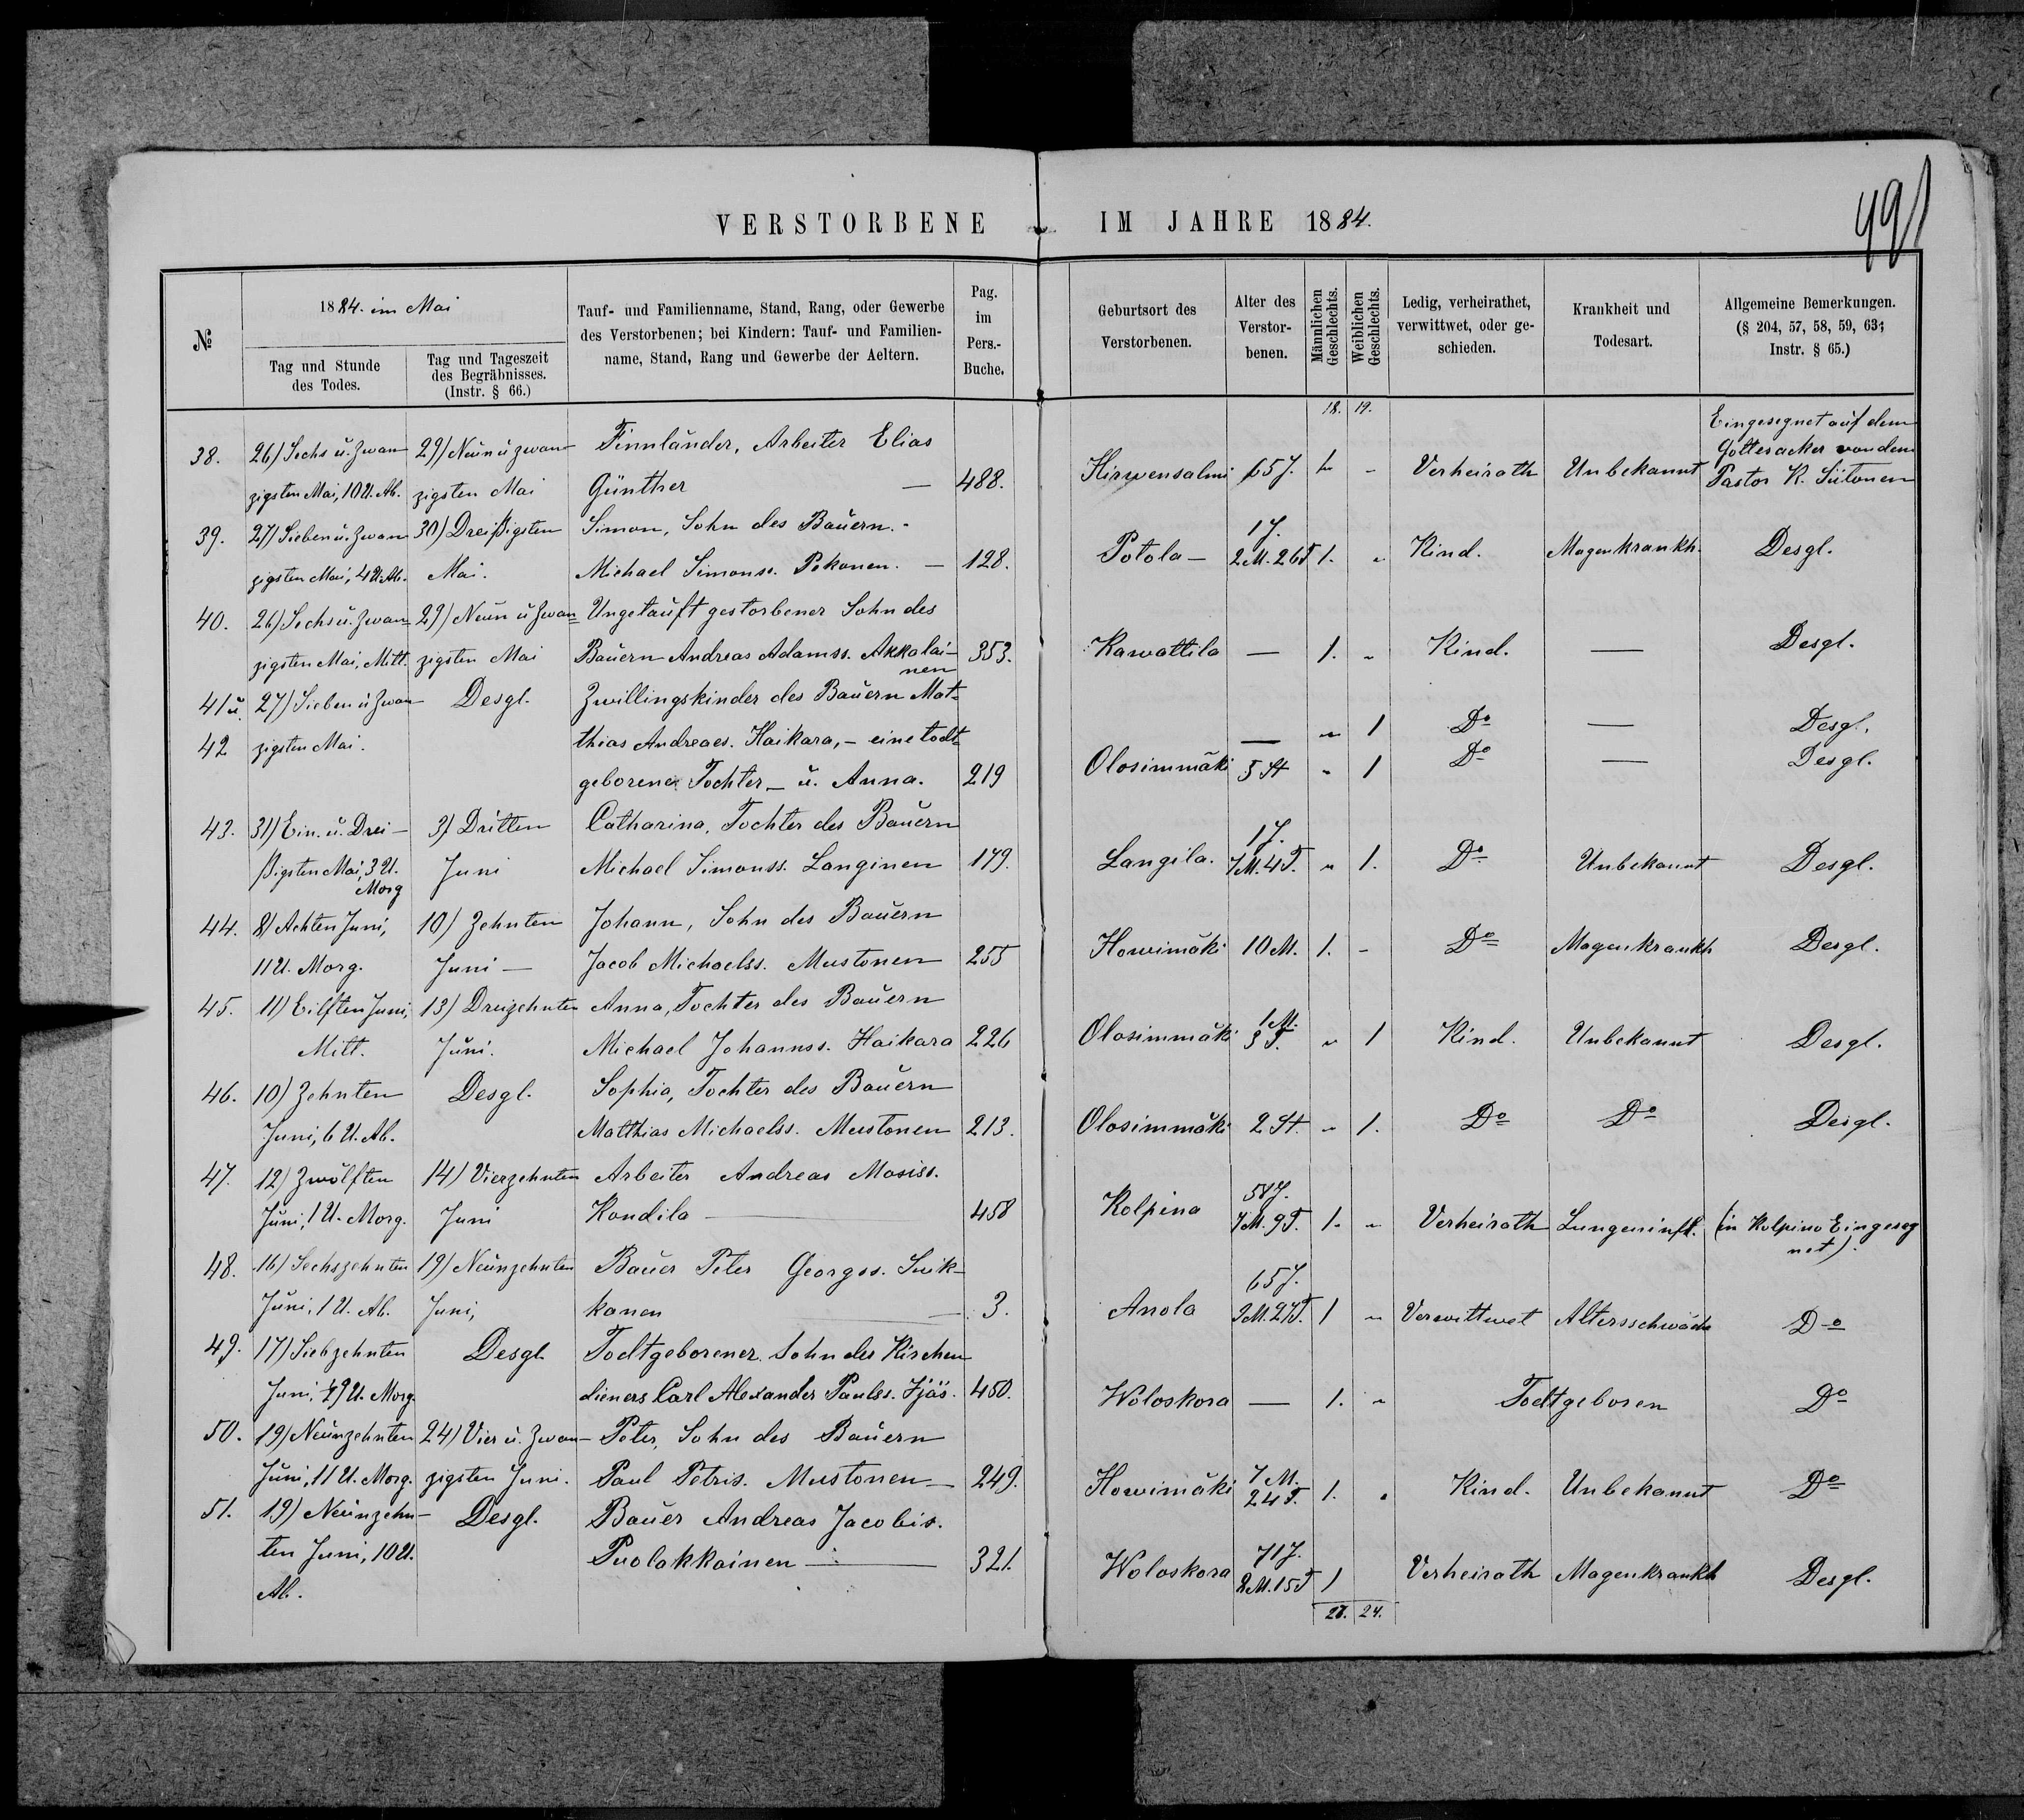 VERSTORBENE IM JAHRE 1884.
491
№
1884. im Mai
Tag und Stunde des Todes.
Tag und Tageszeit des Begräbnisses. (Instr. § 66.)
Tauf- und Familienname, Stand, Rang, oder Gewerbe des Verstorbenen; bei Kindern: Tauf- und Familien-name, Stand, Rang und Gewerbe der Aeltern.
Pag. im Pers.-Buche.
Geburtsort des Verstorbenen.
Alter des Verstor-benen.
Männlichen Geschlechts.
Weiblichen Geschlechts.
Ledig, verheirathet, verwittwet, oder ge-schieden.
Krankheit und Todesart.
Allgemeine Bemerkungen. (§ 204, 57, 58, 59, 63; Instr. § 65.)
18. 19.
Eingesegnet auf dem
38. 26) Sechs u. Zwan 29) Neun u zwan Finnländer, Arbeiter Elias Gottesacker von dem
zigsten Mai, 10 U. Ab. zigsten Mai Günther — 488. Hirwensalmi 65 J. 1. " Verheirath Unbekannt Pastor K. Siitonen
39. 27) Sieben u. Zwan 30) Dreißigsten Simon, Sohn des Bauern. 1 J.
zigsten Mai, 4 U. Ab. Mai. Michael Simonss. Pekonen. — 128. Potola — 2 M. 26 T 1. " Kind. Magenkrankh. Desgl.
40. 26) Sechs u. Zwan= 29) Neun u Zwan= Ungetauft gestorbener Sohn des
zigsten Mai, Mitt. zigsten Mai Bauern Andreas Adamss. Akkalai- 353. Kawattila — 1. " Kind. — Desgl.
nen
41 u. 27) Sieben u Zwan Desgl. Zwillingskinder des Bauern Mat=
42 zigsten Mai. thias Andreaes. Haikara, - eine todt= — " 1 Do — Desgl.
geborene Tochter - u. Anna. 219 Olosimmäki 5 St " 1 Do — Desgl.
43. 31) Ein. u. Drei- 3) Dritten Catharina, Tochter des Bauern 1 J.
ßigsten Mai, 3 U. Juni Michael Simonss. Langinen 179. Langila. 7 M. 4 T. " 1. Do Unbekannt Desgl.
Morg
44. 8) Achten Juni, 10) Zehnten Johann, Sohn des Bauern
11 U. Morg. Juni — Jacob Michaelss. Mustonen 255 Howimäki 10 M. 1. - Do Magenkrankh Desgl.
45. 11) Eilften Juni, 13) Dreizehnten Anna, Tochter des Bauern 1 M.
Mitt. Juni. Michael Johannss. Haikara 226 Olosimmäki 3 T. " 1 Kind. Unbekannt Desgl.
46. 10) Zehnten Desgl. Sophia, Tochter des Bauern
Juni, 6 U. Ab. Matthias Michaelss. Mustonen 213. Olosimmäki 2 St. " 1. Do Do Desgl.
47. 12) Zwölften 14) Vierzehnten Arbeiter Andreas Mosiss.
Juni, 1 U. Morg. Juni Kandila — 458 Kolpina 7 M. 9 T. 1. " Verheirath (in Kolpino Eingeseg
net).
48. 16) Sechszehnten 19) Neunzehnten Bauer Peter Georgss. Suik- 65 J.
Juni, 1 U. Ab. Juni, kanen — 3. Anola 27 T. 1 " Verwittwet Altersschwäche Do
49. 17) Siebzehnten Desgl Todtgeborener Sohn des Kirchen
Juni, U. Morg. dieners Carl Alexander Paulss. 450. Woloskora — 1. " Todtgeboren Do
50. 19) Neunzehnten 24) Vier u. Zwan- Peter, Sohn des Bauern 7 M.
Juni, 11 U. Morg. zigsten Juni. Paul Petris. Mustonen — 249. Howimäki 24 T. 1. " Kind. Unbekannt Do
51. 19) Neunzehn- Desgl. Bauer Andreas Jacobis. 71 J.
ten Juni, 10 U. Puolakkainen — 321. Woloskora 2 M. 15 T 1 Verheirath Magenkrankh Desgl.
Ab.
27. 24.